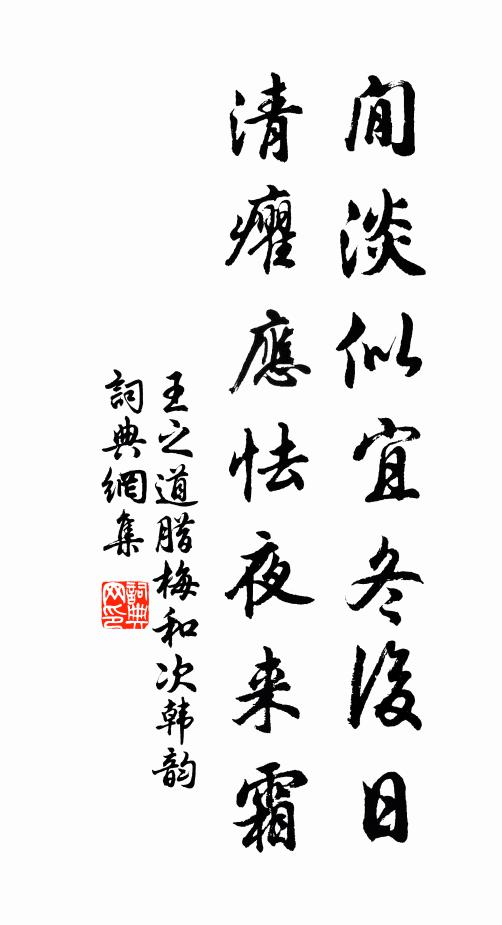 閒淡似宜冬後日
清癯應怯夜来霜
王之道腊梅和次韩韵
詞典網集
詞典网印